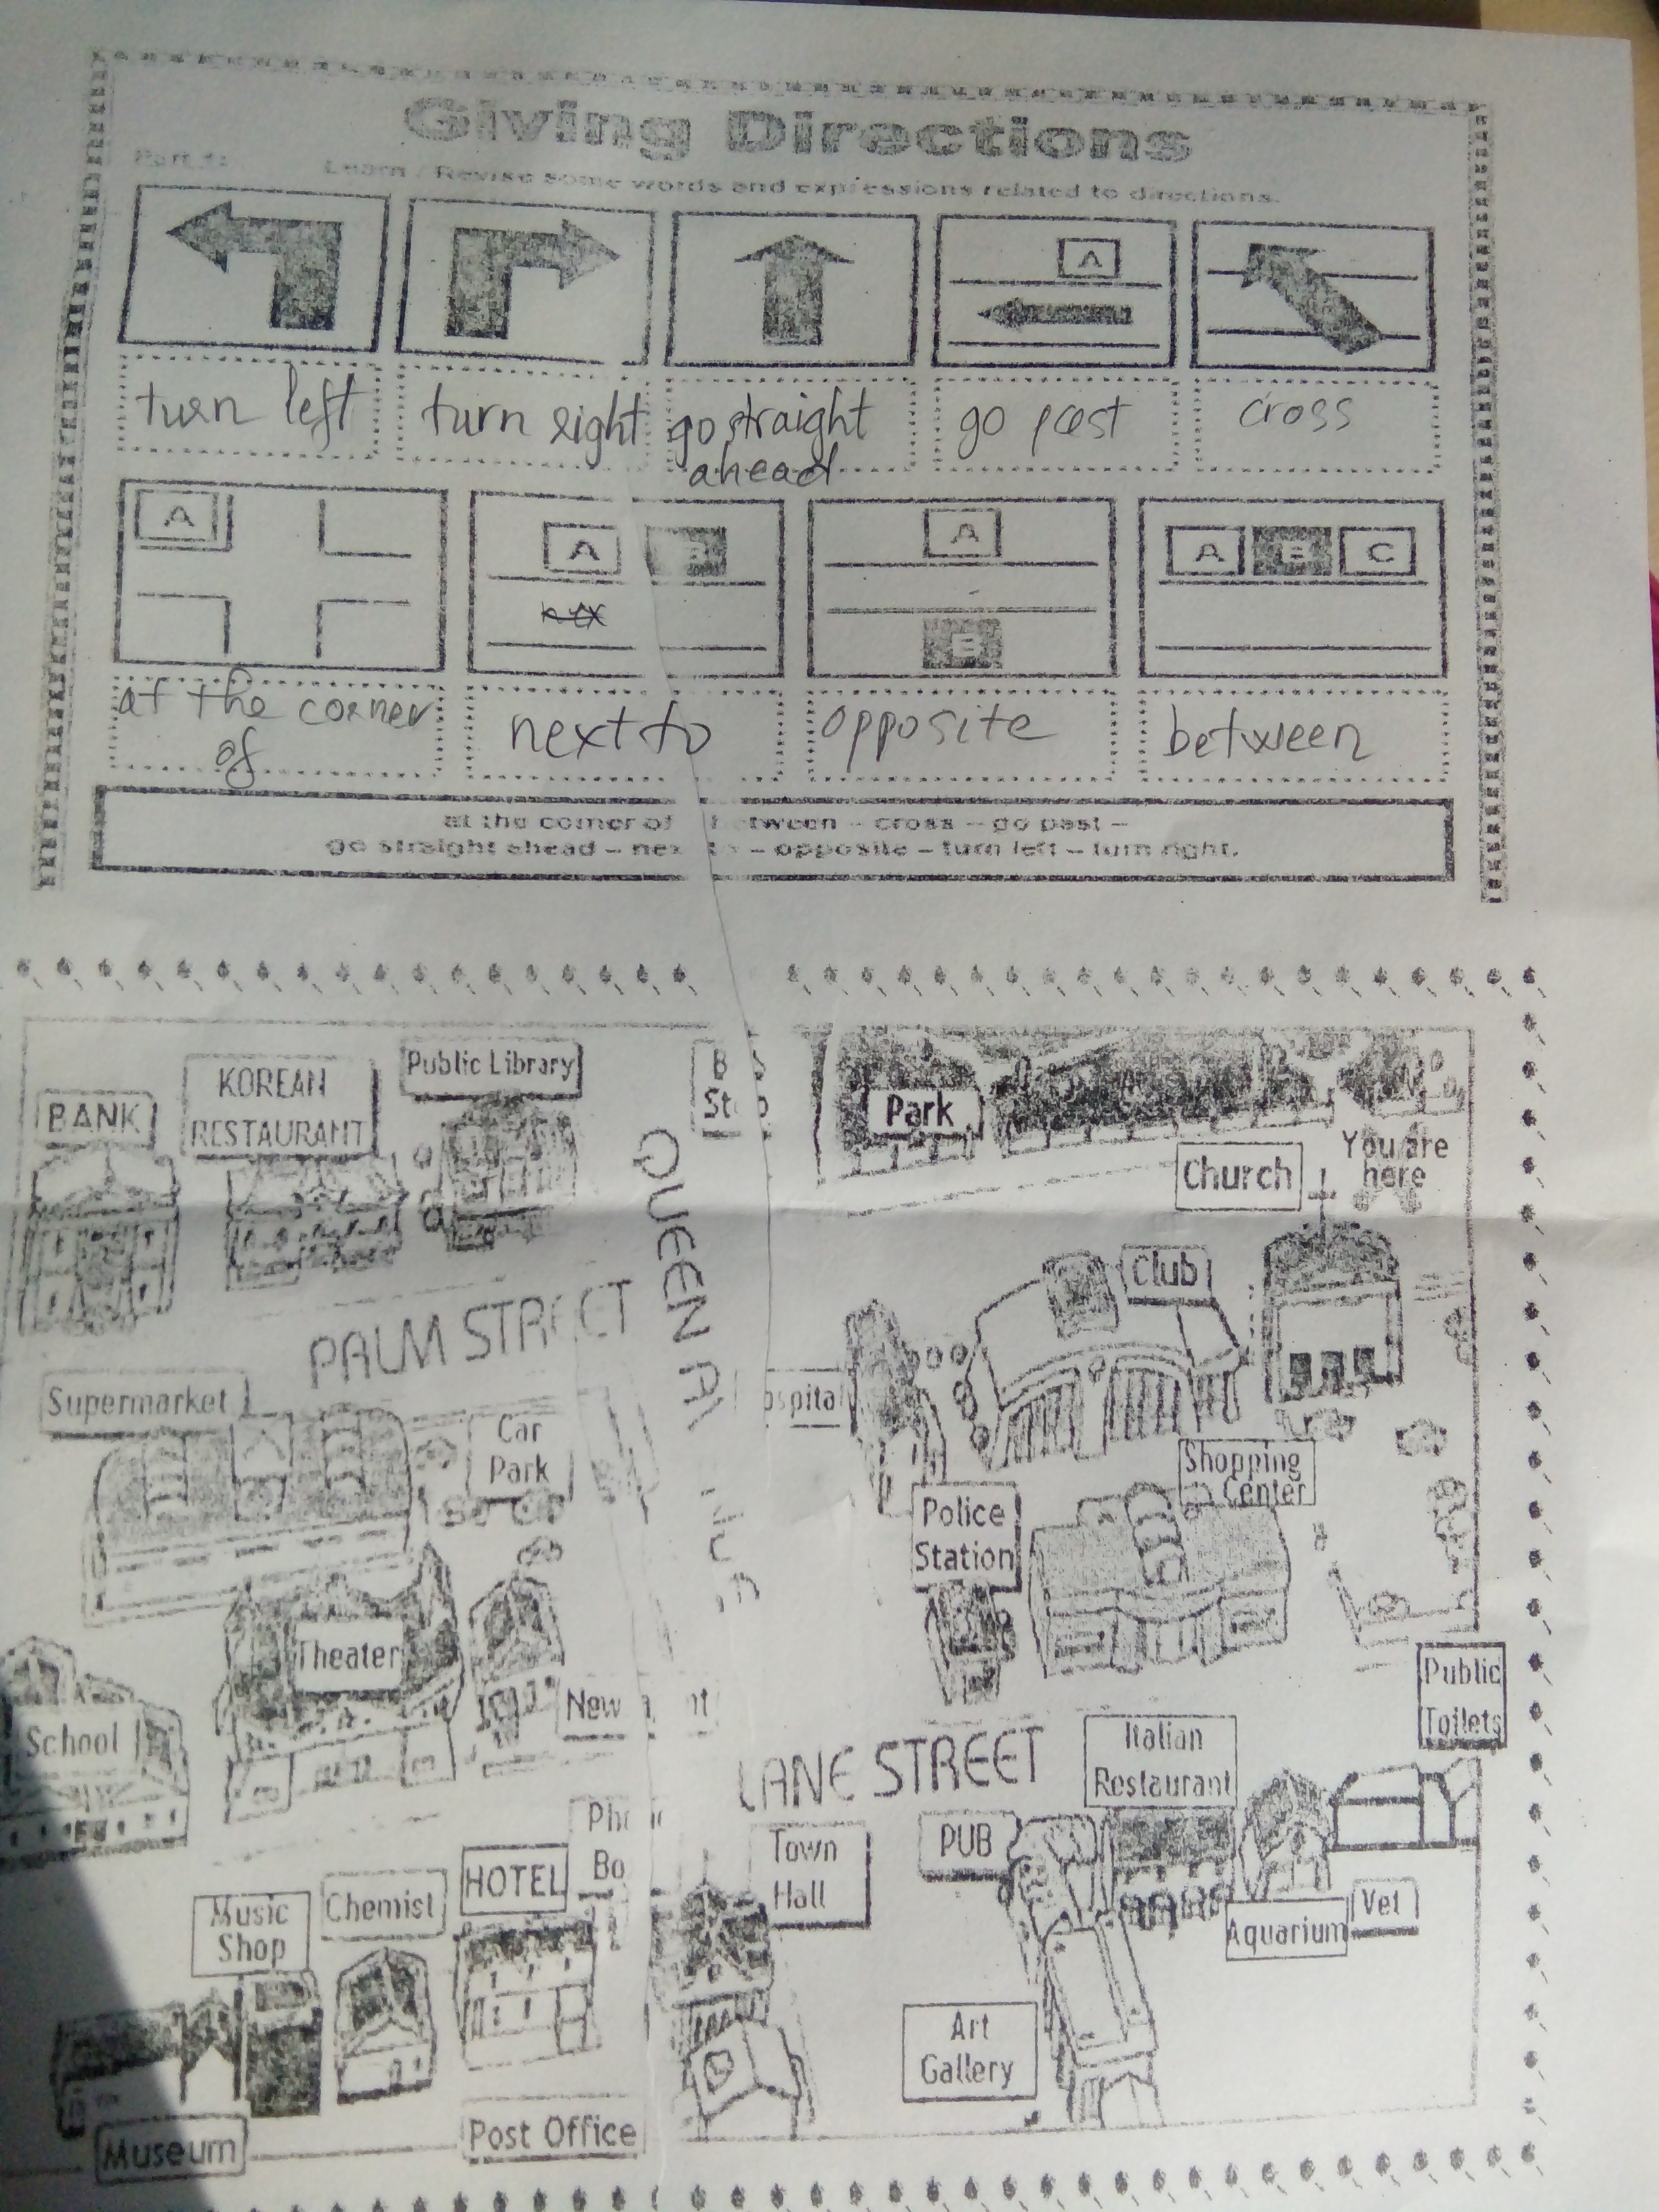 Giving Directions
Part 1: Learn / Revise some words and expressions related to directions.
A
turn left
turn right
go straight
ahead
go past
cross
A
A
A
B
A B C
at the corner
of
next to
opposite
between
at the corner of – between – cross – go past –
go straight ahead – next to – opposite – turn left – turn right.
BANK
KOREAN
RESTAURANT
Public Library
B s
St p
Park
You are
here
Church
QUEEN AV NUE
PALM STREET
Club
Supermarket
Car
Park
ospital
Shopping
Center
Police
Station
Theater
School
New nt
Public
Toilets
LANE STREET
Italian
Restaurant
Pho
Bo
Town
Hall
PUB
HOTEL
Chemist
Music
Shop
Vet
Aquarium
Art
Gallery
Museum
Post Office